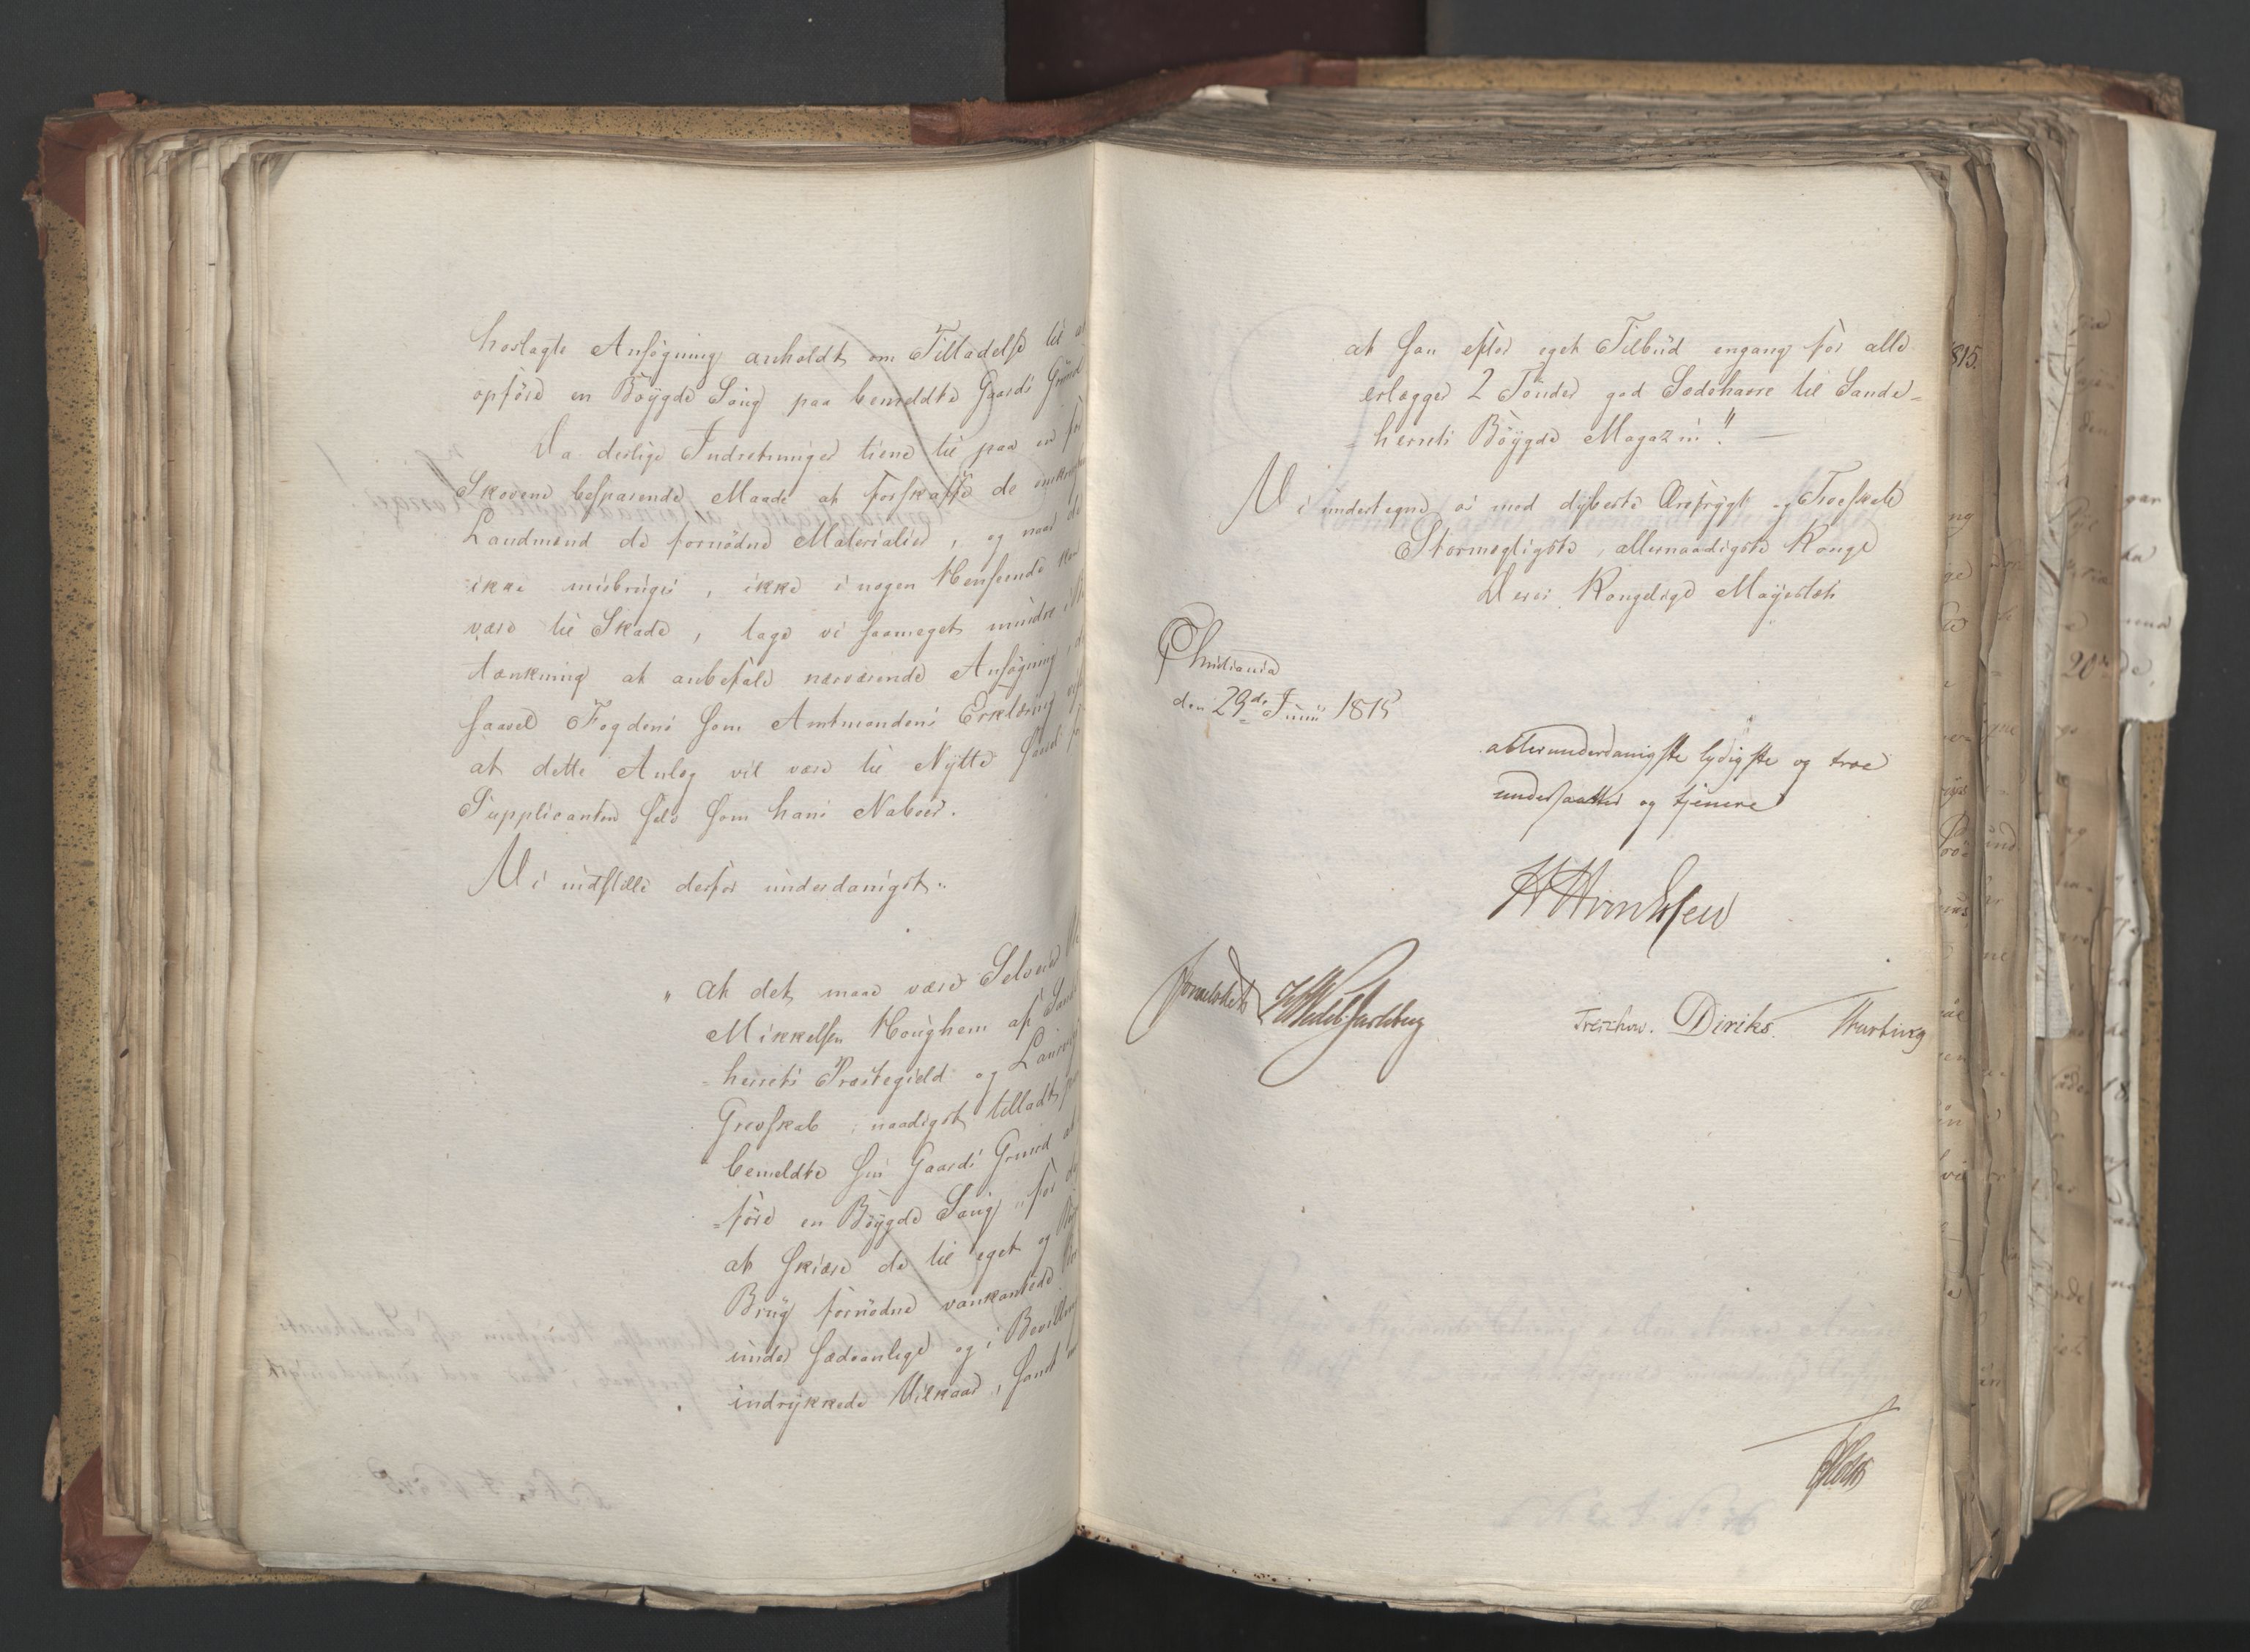 hoslagte Ansøgning anholdt om Tilladelse til at
opføre en Bøygde Saug paa bemeldte Gaards Grund
Da deslige Indretninger tiene til paa en for
Skovene besparende Maade at forskaffe de
Landmænd de fornødne Materialier, og naar de
ikke misbruges, ikke i nogen Henseende kan
være til Skade, tage vi saameget mindre
tænkning at anbefale nærværende Ansøgning,
saavel Fogdens som Amtmandens Erklæring
at dette Anlæg vil være til Nytte saavel for
Supplicanten selv som hans Naboer.
Vi indstille derfor underdanigst:
"At det maa være Selveier
Mikkelsen Houghem af Sande
=herrets Præstegield og Laurvigs
Grevskab naadigst tilladt paa
bemeldte sin Gaards Grund at
=føre en Bøygde Saug, for
at skiære de til eget og
Brug fornødne vankantede
under sædvanlige og i
indrykkede Vilkaar, samt
1815.
at han efter eget Tilbud engang for alle
erlægger 2 Tønder god Sædehavre til Sande=
=herrets Bøygde Magazin". —
Vi undertegne os med dybeste Ærefrygt og Troeskab
Stormægtigste, allernaadigste Konge
Deres Kongelige Mayestæts
Christiania
den 29de Junii 1815
allerunderdanigste lydigste og troe
undersaatter og tjenere
Sommerhielm HWedel Jarlsberg
Treschow. Diriks. Motzfeldt
Holst